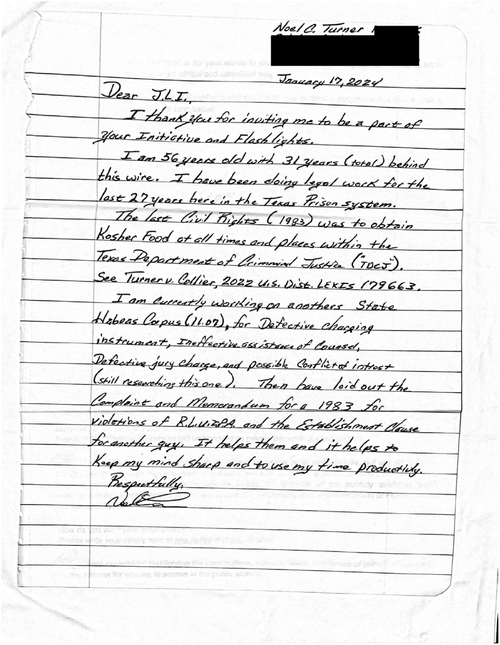 Noel C. Turner
January 17, 2024
Dear J.L.I.,
I thank you for inviting me to be a part of
Your Initiative and Flashlights.
I am 56 years old with 31 years (total) behind
this wire. I have been doing legal work for the
last 27 years here in the Texas Prison system.
The last Civil Rights (1983) was to obtain
Kosher Food at all times and places within the
Texas Department of Criminal Justice ("TDCJ").
See Turner v. Collier, 2022 U.S. Dist. LEXIS 179663.
I am currently working on anothers State
Habeas Corpus (11.07), for Defective charging
instrument, Ineffective assistance of Counsel,
Defective jury charge, and possible Conflict of intrest
(still researching this one). Then have laid out the
Complaint and Memorandum for a 1983 for
violations of RLUIPA and the Establishment Clause
for another guy. It helps them and it helps to
Keep my mind sharp and to use my time productivly.
Respectfully,